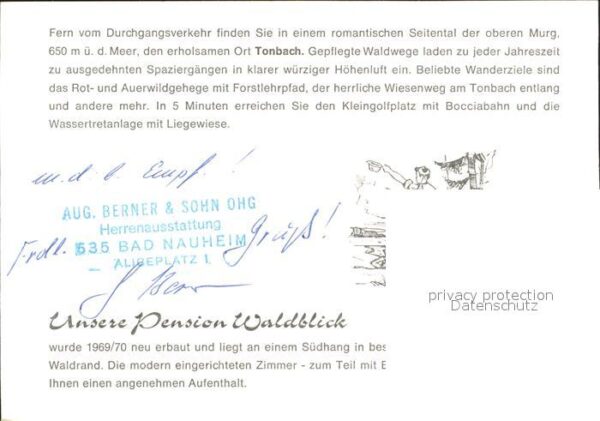 Fern vom Durchgangsverkehr finden Sie in einem romantischen Seitental der oberen Murg,
650 m ü. d. Meer, den erholsamen Ort Tonbach. Gepflegte Waldwege laden zu jeder Jahreszeit
zu ausgedehnten Spaziergängen in klarer würziger Höhenluft ein. Beliebte Wanderziele sind
das Rot- und Auerwildgehege mit Forstlehrpfad, der herrliche Wiesenweg am Tonbach entlang
und andere mehr. In 5 Minuten erreichen Sie den Kleingolfplatz mit Bocciabahn und die
Wassertretanlage mit Liegewiese.
m. d. b. Empf. !
AUG. BERNER & SOHN OHG
Herrenausstattung
Frdl. Gruß!
635 BAD NAUHEIM
— ALICEPLATZ 1
privacy protection
Datenschutz
Unsere Pension Waldblick
wurde 1969/70 neu erbaut und liegt an einem Südhang in bes
Waldrand. Die modern eingerichteten Zimmer - zum Teil mit B
Ihnen einen angenehmen Aufenthalt.